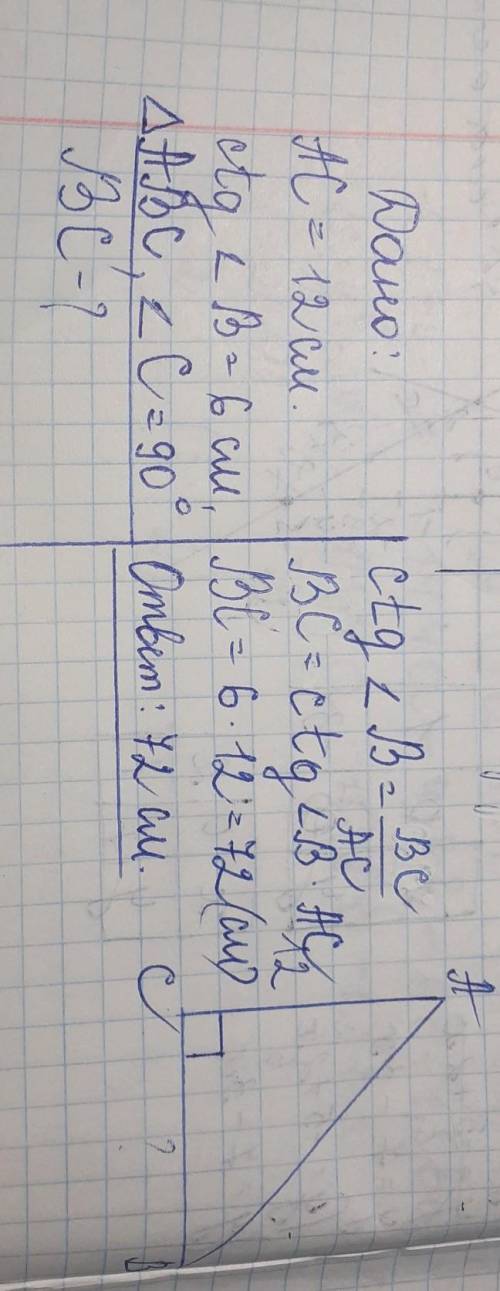 Дано:
AC = 12 см.
ctg < B = 6 см,
△ABC, < C = 90°
BC - ?
ctg < B = BC/AC
BC = ctg < B · AC
12
BC = 6 · 12 = 72 (см)
Ответ: 72 см.
A
C
?
B